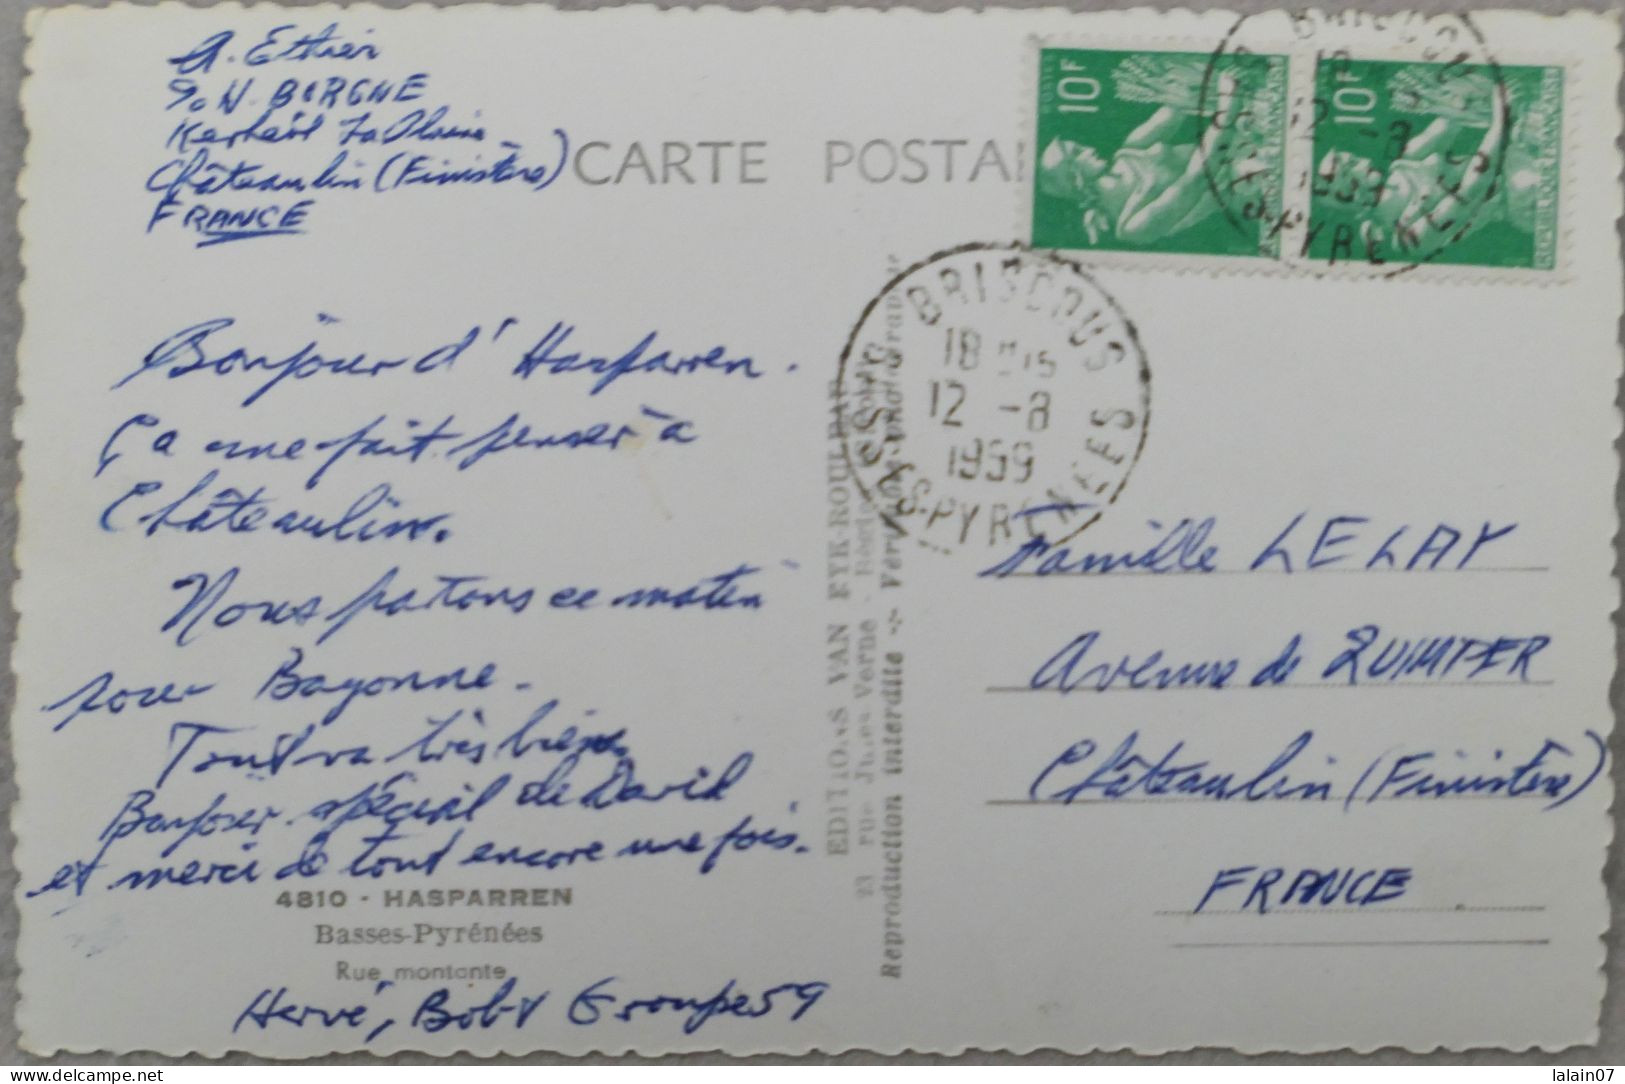 A. Ethier
90 N. BORGNE
Châteaulin (Finistère)
FRANCE
CARTE POSTA
10F
POSTES
REPUBLIQUE FRANÇAISE
10F
REPUBLIQUE FRANÇAISE
BRISCOUS
18
12 -8
1959
BSES-PYRENEES
BRISCOUS
18 H15
12 -8
1959
BSES-PYRENEES
Bonjour d'Hasparren.
Ça me fait penser à
Châteaulin.
Nous partons ce matin
pour Bayonne.
Tout va très bien
Bonjour spécial de David
et merci de tout encore une fois.
4810 - HASPARREN
Basses-Pyrénées
Rue montante
Hervé, Bob & Groupe 59
EDITIONS VAN EYK-ROULEAU
23 rue Jules Verne -
Reproduction interdite -:- Véritable
Famille LE LAY
Avenue de QUIMPER
Châteaulin (Finistère)
FRANCE
lalain07